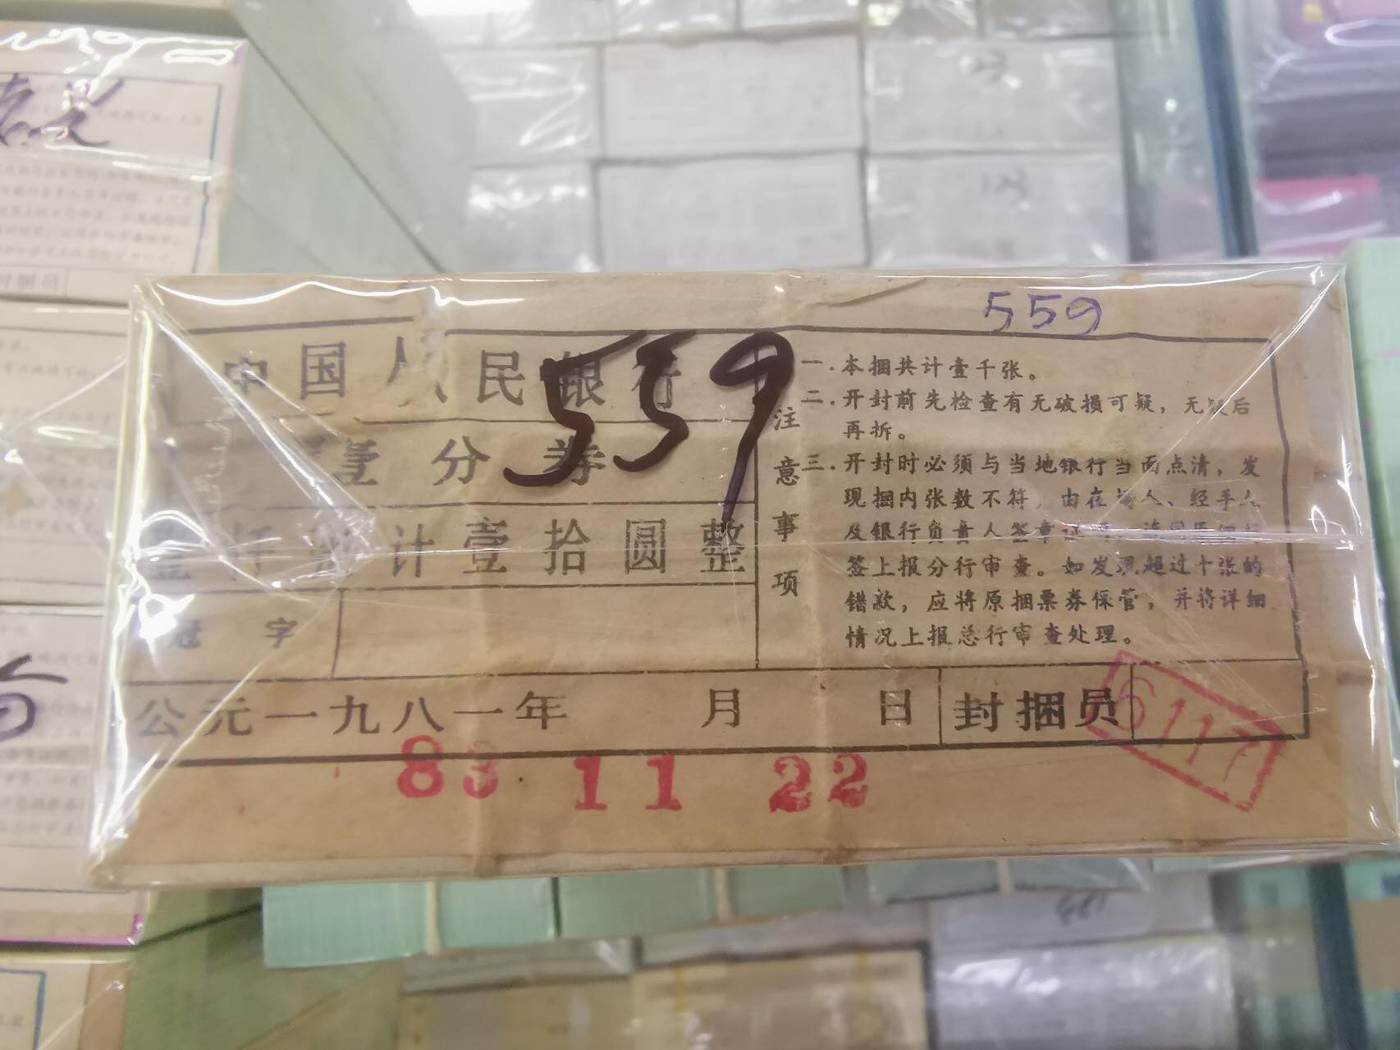 559
中国人民银行
559
壹分券
壹仟张计壹拾圆整
冠字
公元一九八一年 月 日 封捆员
83 11 22
6117
注意事项
一.本捆共计壹千张。
二.开封前先检查有无破损可疑，无疑后
再拆。
三.开封时必须与当地银行当面点清，发
现捆内张数不符，由在场人、经手人
及银行负责人签章证明，连同原捆封
签上报分行审查。如发现超过十张的
错款，应将原捆票券保管，并将详细
情况上报总行审查处理。